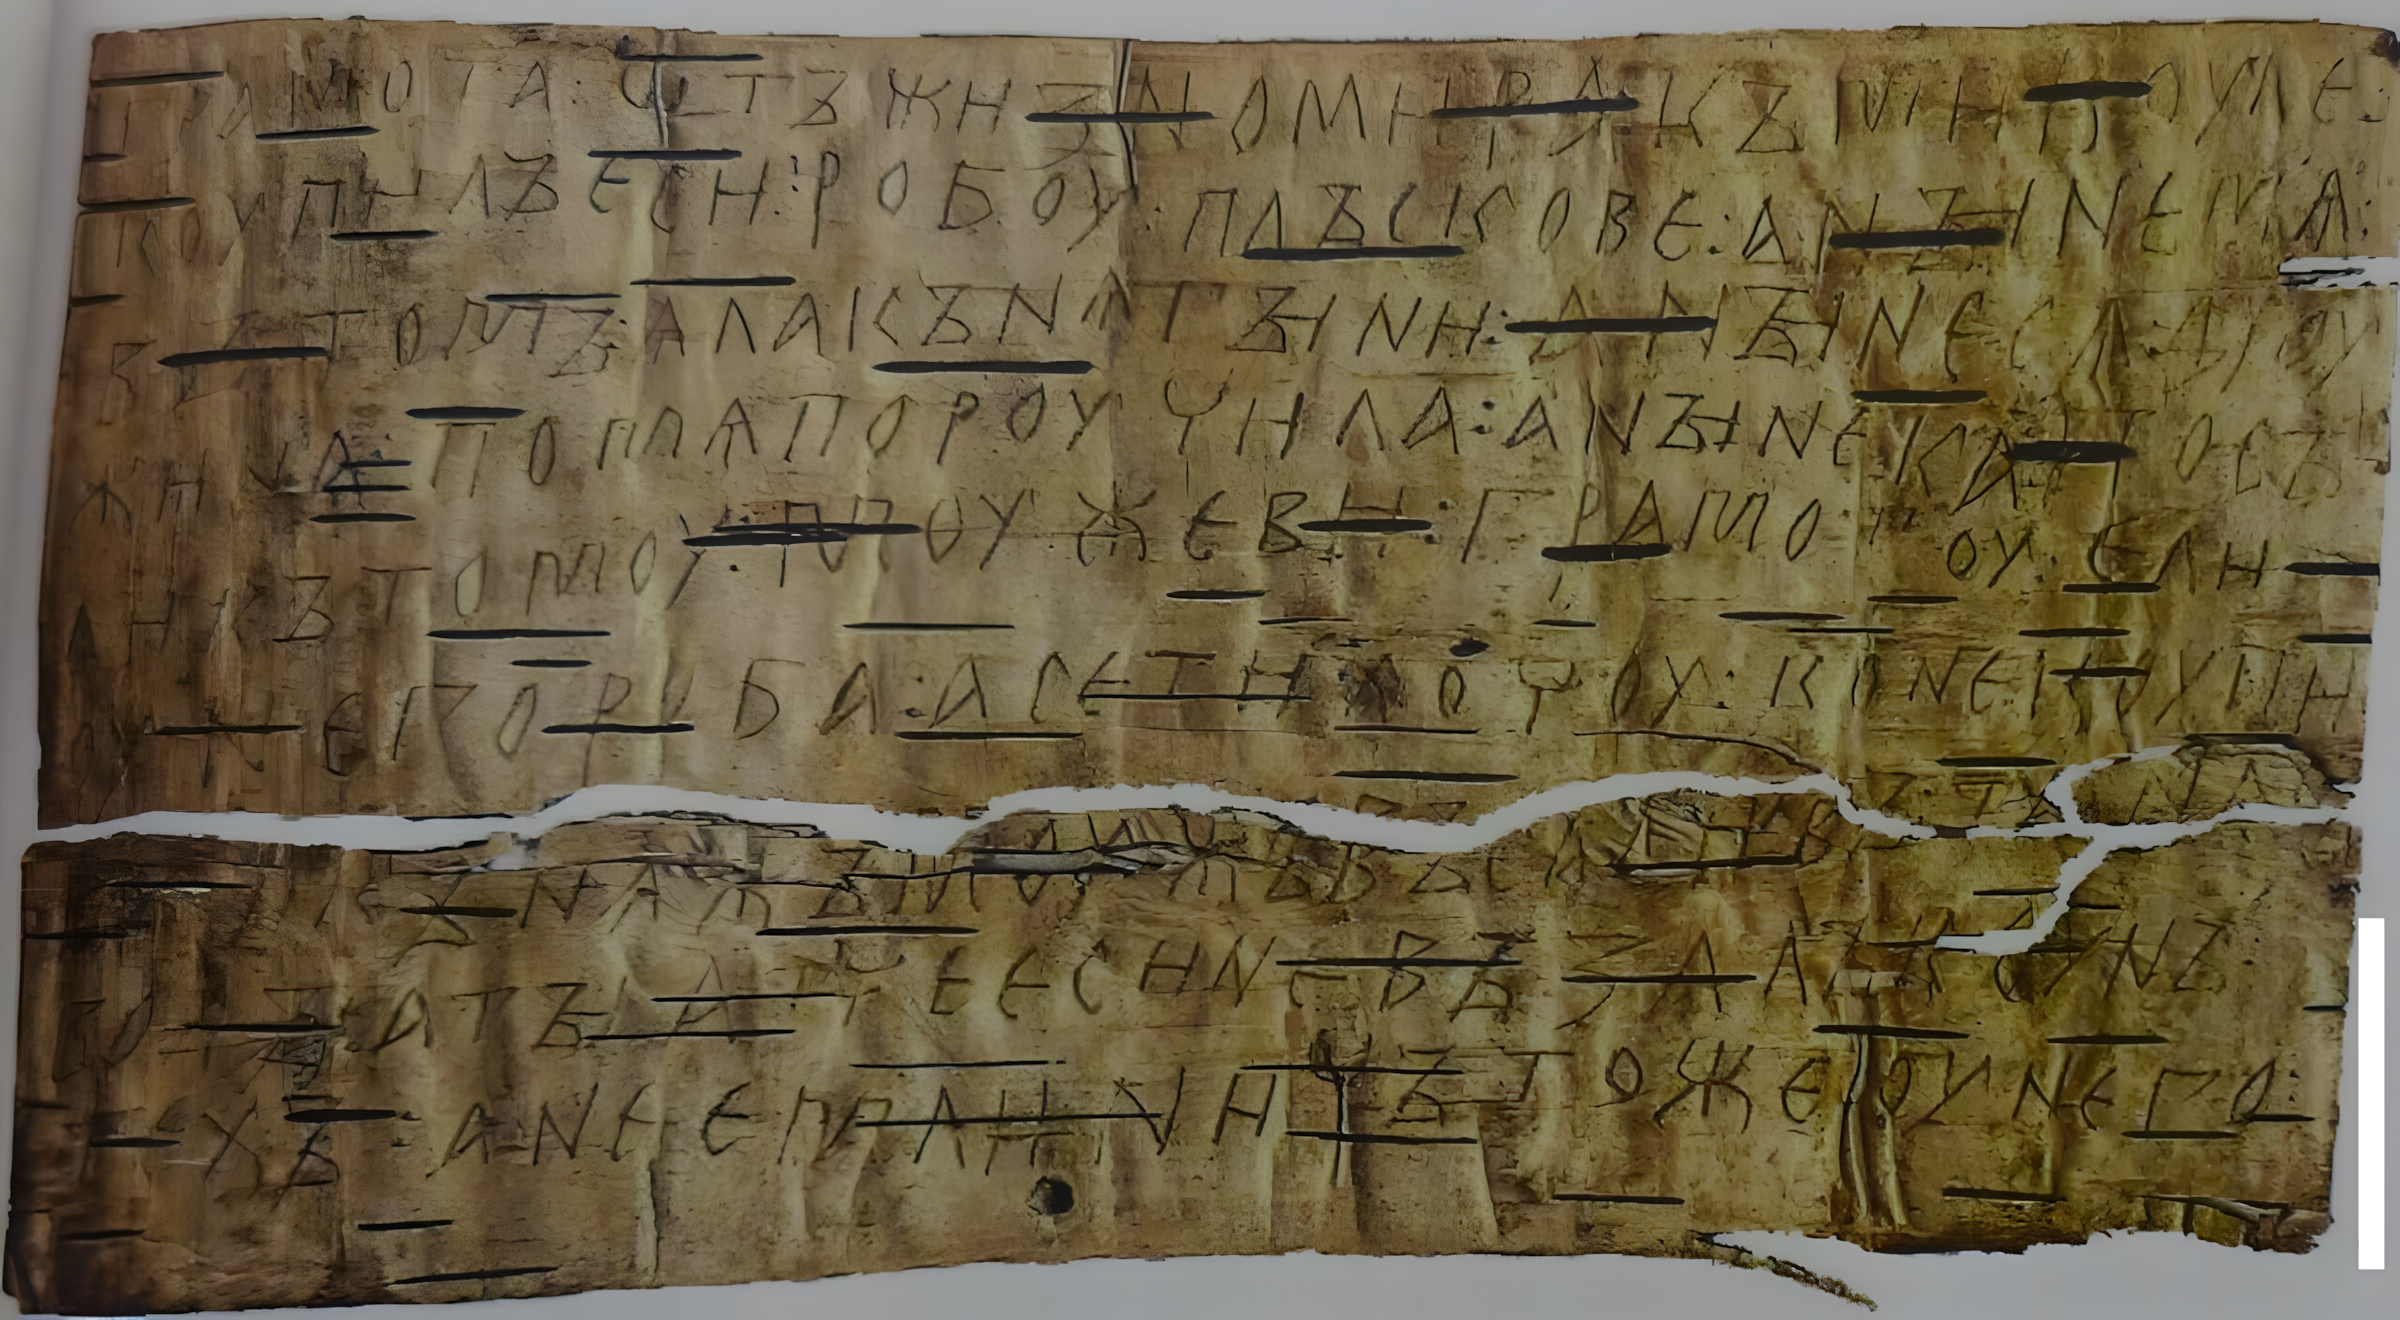 грамота : ѡтъ жизномира къ микоуле :
коупилъ еси : робоу : плъскове : а нꙑне мѧ :
въ томъ : ѧла кънѧгꙑни : а нꙑне сѧ дроу
жина : по мѧ пороучила : а нꙑне ка : посъ
ли къ томоу : моужеви : грамотоу : ели
оу него роба : а се ти хочоу : коне коупи
въ : и кънѧжъ моужъ въсадивъ : та на съ
водꙑ : а тꙑ атче еси не възалъ коунъ
техъ : а не емли ничъто же оу него :